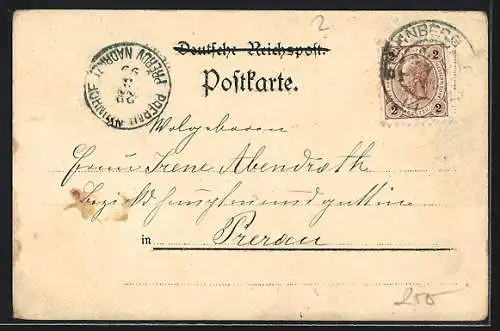 2
Deutsche Reichspost.
Postkarte.
PREROV NADRAŽI
PRERAU BAHNHOF
99
2
2
2
Wolgeboren
Frau Irene Abendroth
Bezirkshauptmannsgattin
in Prerau
200